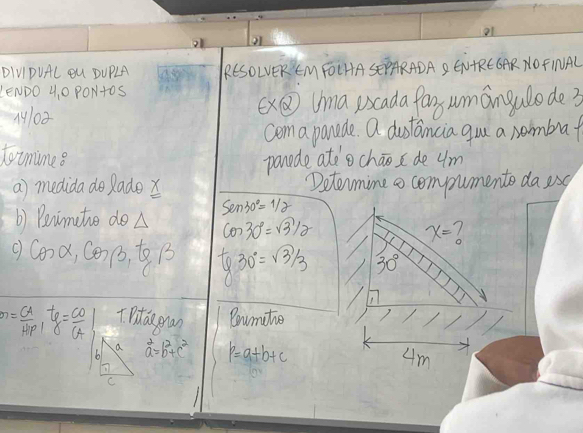 DIVIDUAL OU DUPLA
LENDO 4,0 PONTOS
14/02
termine:
a) medida do lado x
b) Perimetro do △
c) Cos α, Cos β, tg β
= CA/Hip, tg = CO/CA
T. Pitágoras
a² = b² + c²
a
b
c
RESOLVER EM FOLHA SEPARADA E ENTREGAR NO FINAL
EX ② Uma escada faz um ângulo de 3
com a parede. A distância que a sombra f
parede até o chão é de 4m
Determine o comprimento da esc
Sen 30° = 1/2
Cos 30° = √3/2
tg 30° = √3/3
Perimetro
P = a + b + c
x = ?
30°
4m